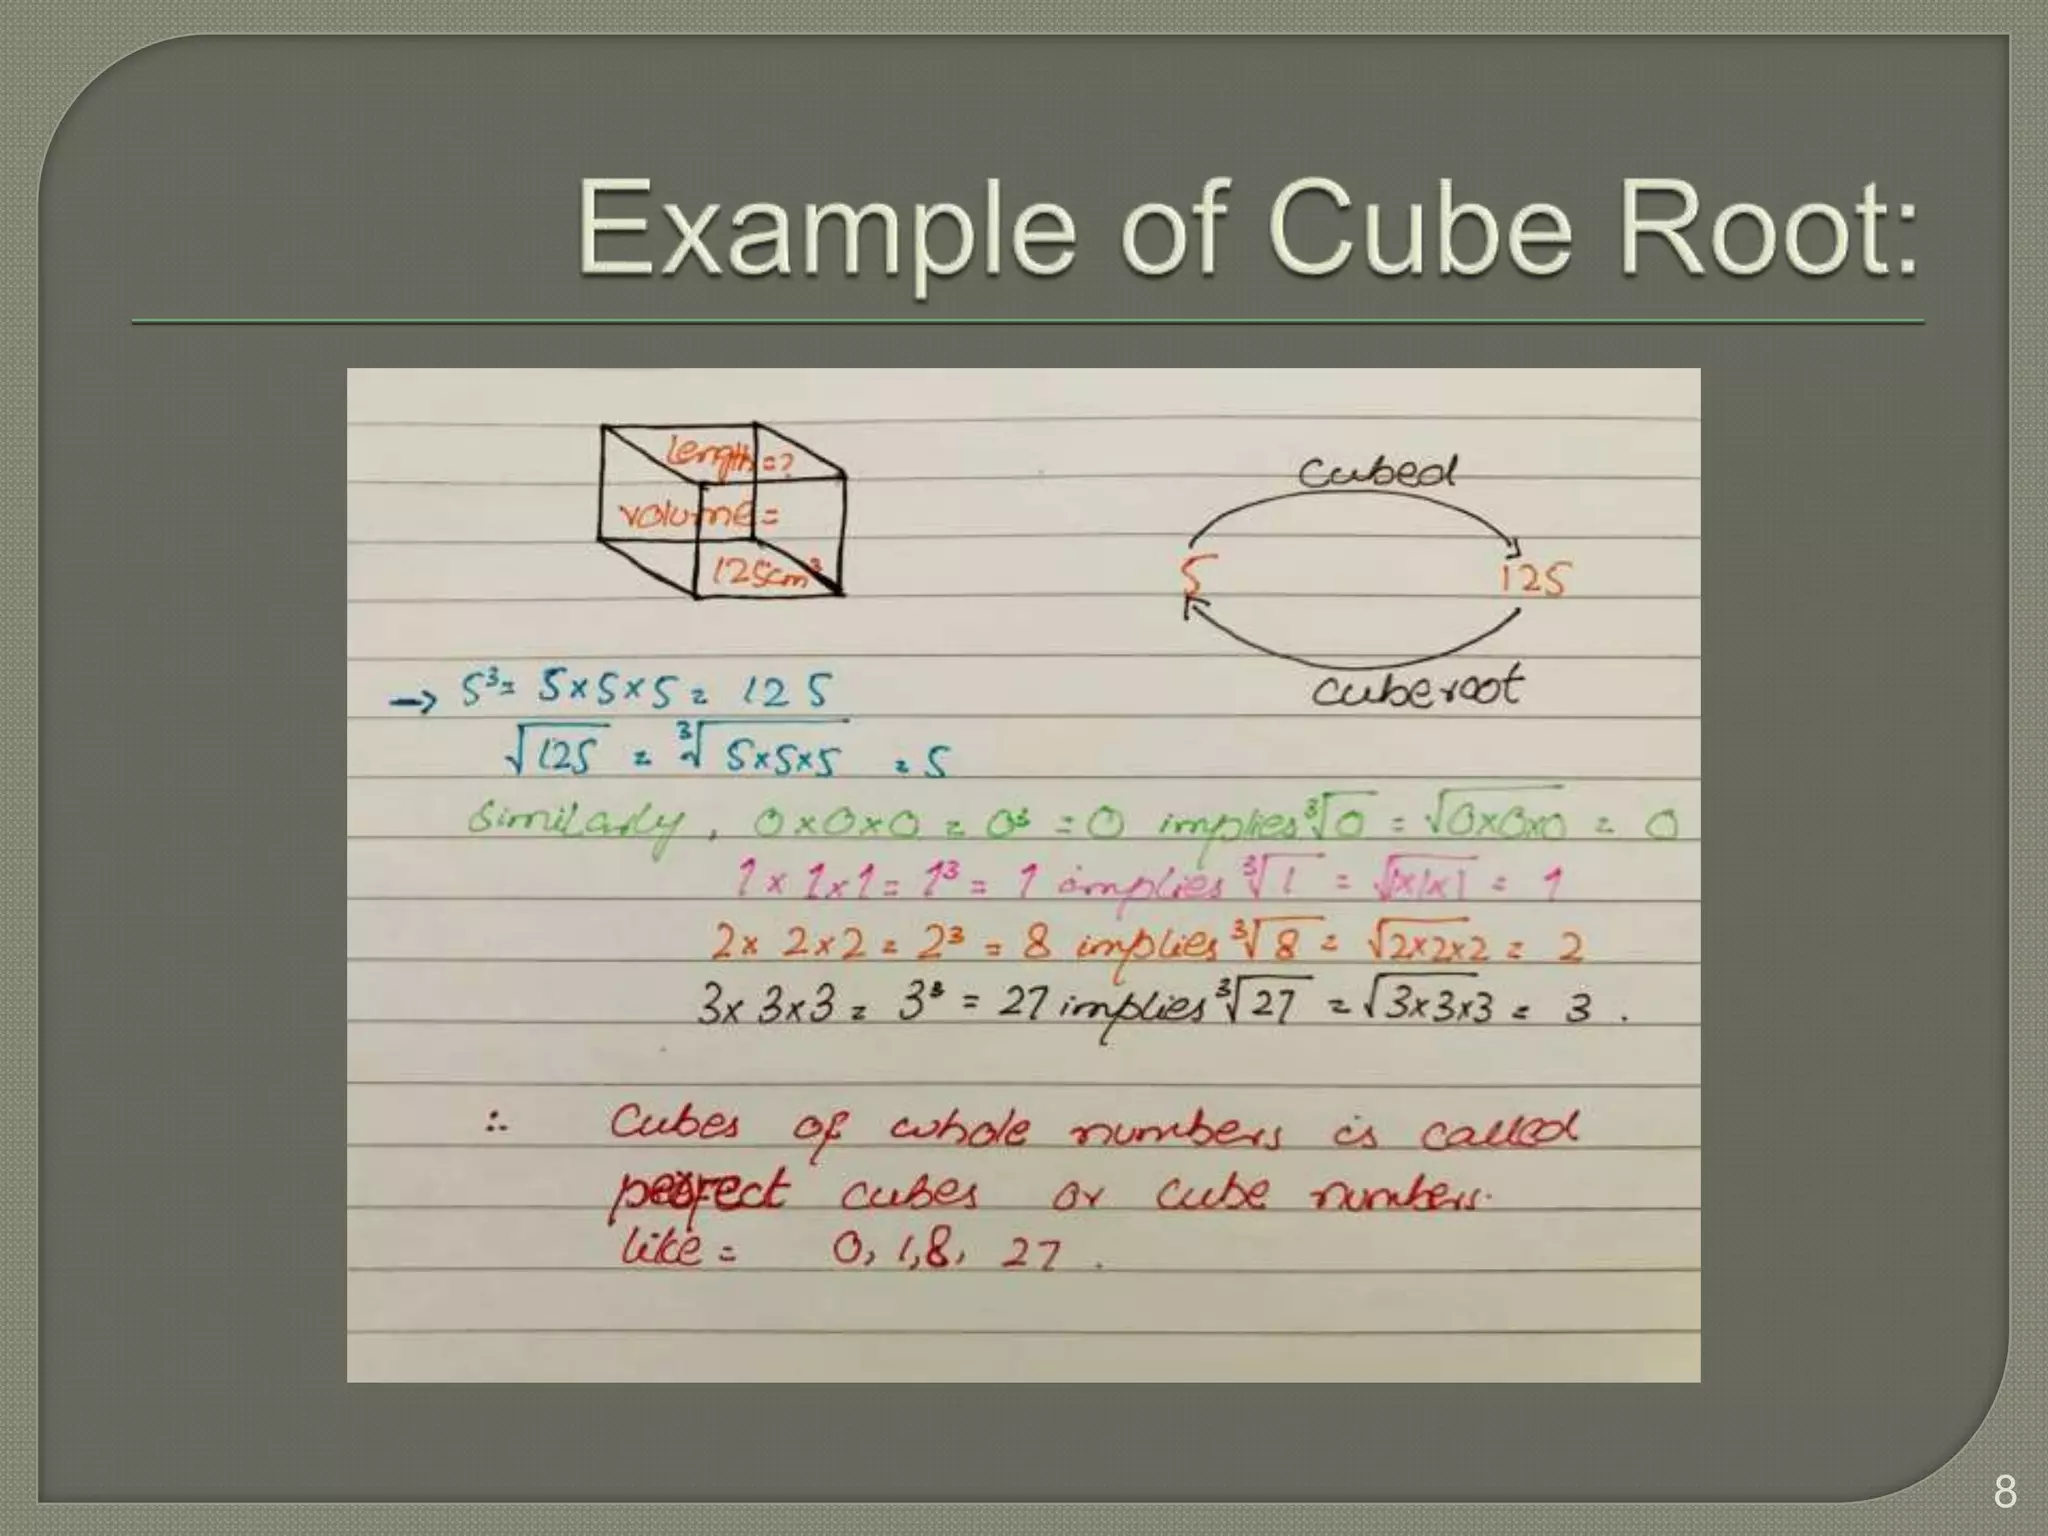 Example of Cube Root:
length = ?
volume =
125cm³
cubed
5 125
cuberoot
→ 5³ = 5×5×5 = 125
√125 = ∛5×5×5 = 5
Similarly, 0×0×0 = 0³ = 0 implies ∛0 = √0×0×0 = 0
1×1×1 = 1³ = 1 implies ∛1 = √1×1×1 = 1
2×2×2 = 2³ = 8 implies ∛8 = √2×2×2 = 2
3×3×3 = 3³ = 27 implies ∛27 = √3×3×3 = 3.
∴ Cubes of whole numbers is called
perfect cubes or cube numbers.
like = 0, 1, 8, 27.
8